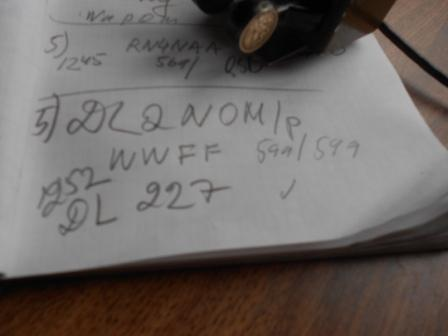 5) RN4NAA
1245 569/
5) DL2NOM/p
WWFF 599/599
1252
DL 227 ✓